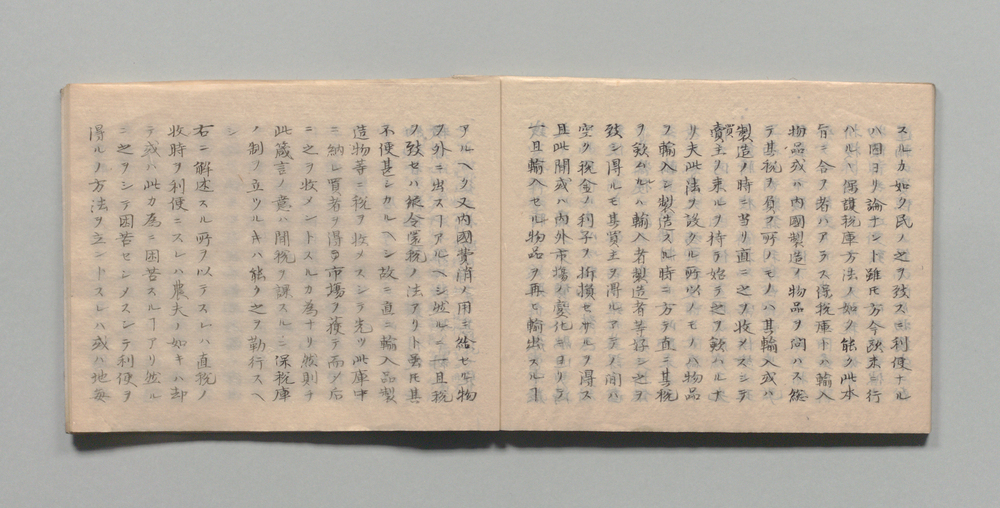 スルカ如ク民ノ之ヲ致スニ利便ナル
ハ固ヨリ論ナシト雖𪜈方今歐米ニ行
ハルヽ保護税庫方法ノ如ク能ク此本
旨ニ合フ者ハアラス保税庫トハ輸入
物品或ハ内國製造ノ物品ヲ問ハス総
テ其税ヲ負フ所ノモノハ其輸入或ハ
製造ノ時ニ当リ直ニ之ヲ收メスシテ
賣買主ヲ来ルヲ待テ始テ之ヲ歛ハルナ
リ夫此法ヲ設クル所以ノモノハ物品
ヲ輸入シ製造スル時ニ方テ直ニ其税
ヲ歛ムルハ輸入者製造者等好シ之ヲ
致シ得ルモ其買主ヲ得ルマテノ間ハ
空ク税金ノ利子ヲ折損セサルヲ得ス
且此間或ハ内外市場ノ變化ニヨリテ
一旦輸入セル物品ヲ再ヒ輸出スルヿ
アルヘク又内國費消ノ用ニ給セル物
ヲ外ニ出スヿアルヘシ然ルニ一旦税
ヲ致セハ縦令還税ノ法アリト雖𪜈其
不便甚シカルヘシ故ニ直ニ輸入品製
造物等ニ税ヲ收メスシテ先ツ此庫中
ニ納レ買者ヲ得ル市場ヲ獲テ而シ后
ニ之ヲ收メントスルカ為ナリ然則チ
此箴言ノ意ハ間税ヲ課スルニ保税庫
ノ制ノ立ツルキハ能ク之ヲ勤行スヘ
シ
右ニ解述スル所ヲ以テスレハ直税ノ
收時ヲ利便ニスレハ農夫ノ如キハ却
テ或ハ此カ為ニ困苦スルヿアリ然ル
ニ之ヲシテ困苦セシメスシテ利便ヲ
得ルノ方法ヲ立ントスレハ或ハ地毎